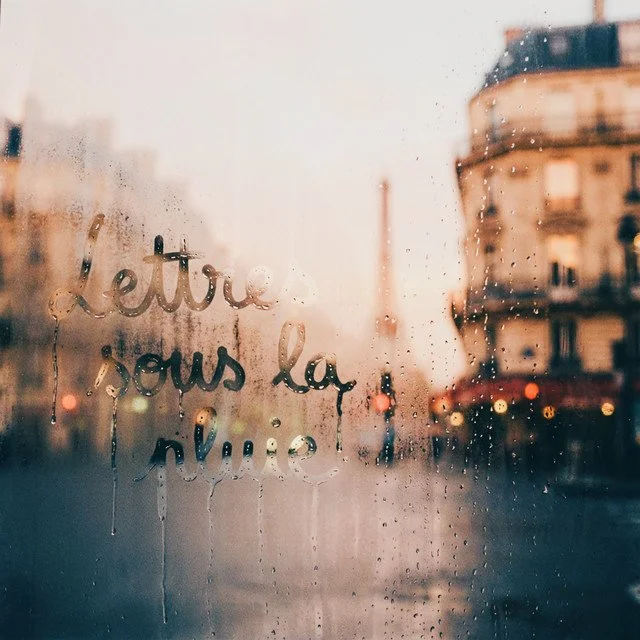 Lettres
sous la
pluie